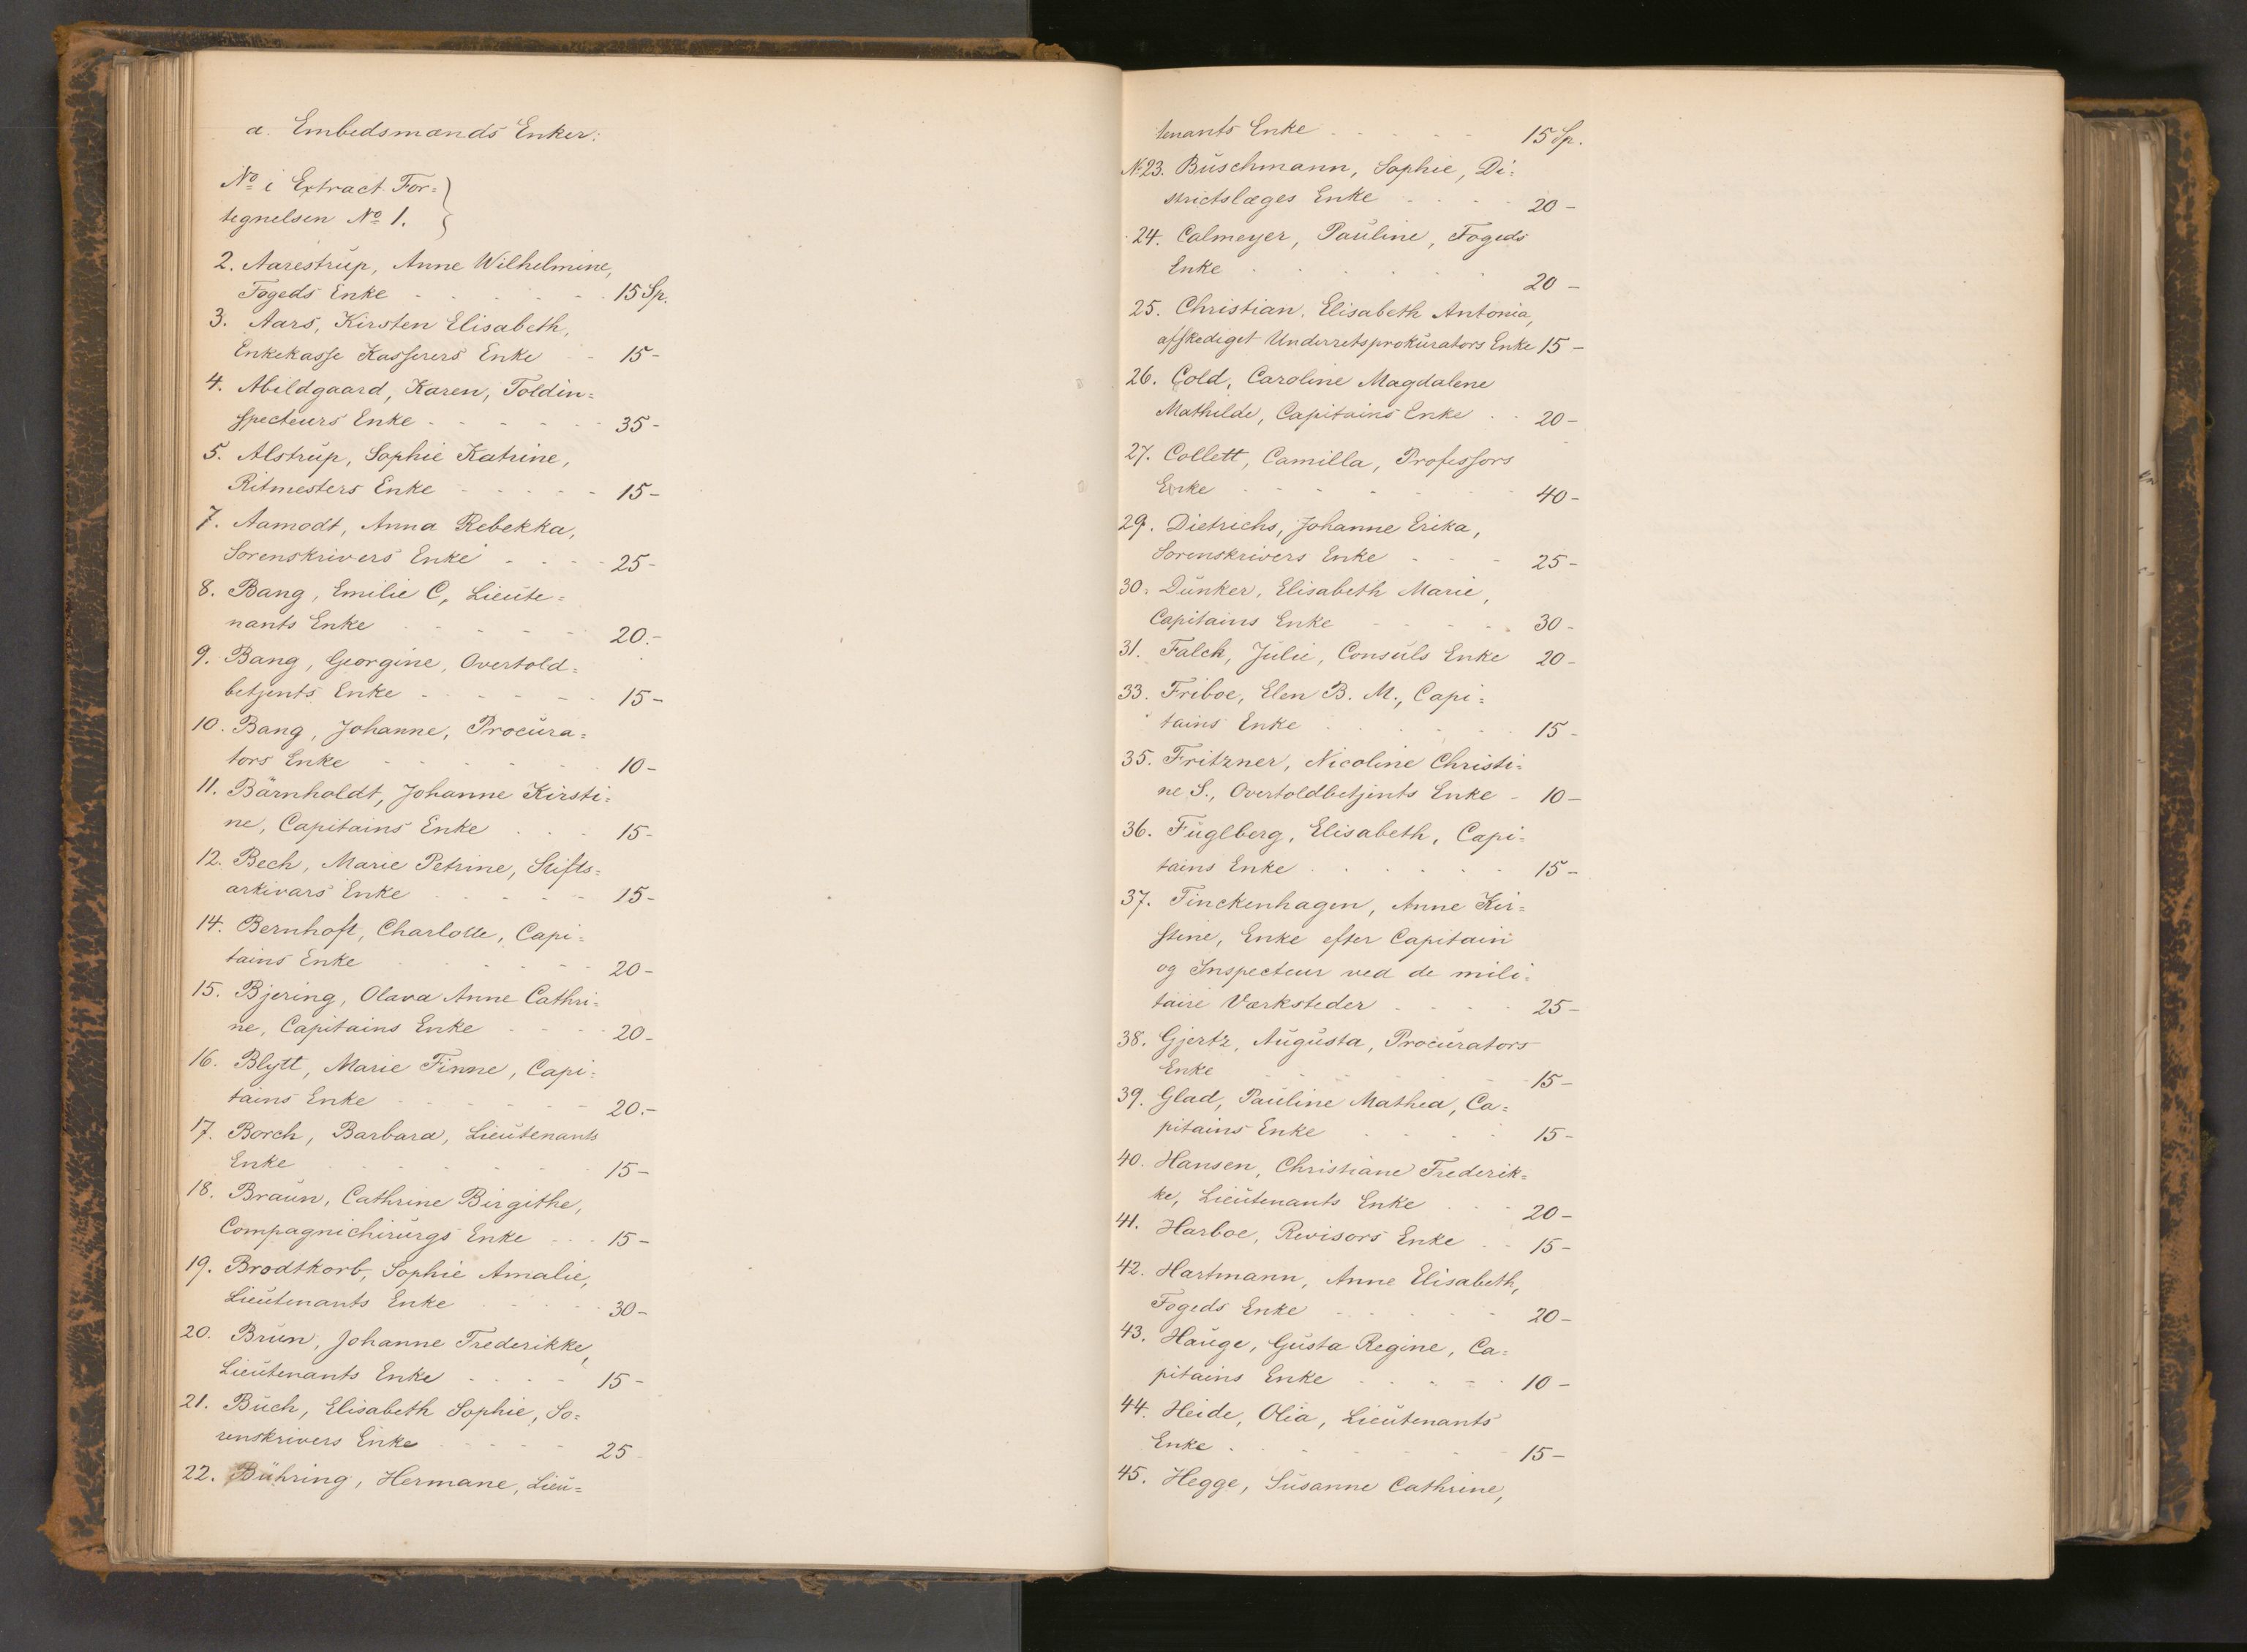 a. Embedsmænds Enker:
No i Extract For=
tegnelsen No 1.
2. Aarestrup, Anne Wilhelmine,
Fogeds Enke - - - - - 15 Sp.
3. Aars, Kirsten Elisabeth,
Enkekasse Kasserers Enke - 15-
4. Abildgaard, Karen, Toldin=
specteurs Enke - - - - - 35-
5. Alstrup, Sophie Katrine,
Ritmesters Enke - - - - - 15-
7. Aamodt, Anna Rebekka,
Sorenskrivers Enke - - - - 25-
8. Bang, Emilie C, Lieute=
nants Enke - - - - - 20.-
9. Bang, Georgine, Overtold=
betjents Enke - - - - - 15-
10. Bang, Johanne, Procura=
tors Enke - - - - - 10-
11. Bärnholdt, Johanne Kirsti=
ne, Capitains Enke - - - 15-
12. Bech, Marie Petrine, Stifts=
arkivars Enke - - - - - 15-
14. Bernhoft, Charlotte, Capi=
tains Enke - - - - - 20-
15. Bjering, Olava Anne Cathri=
ne, Capitains Enke - - - - 20-
16. Blytt, Marie Finne, Capi=
tains Enke - - - - - - 20.-
17. Borch, Barbara, Lieutenants
Enke - - - - - - 15-
18. Braun, Cathrine Birgithe,
Compagnichirurgs Enke - - - 15-
19. Brodtkorb, Sophie Amalie,
Lieutenants Enke - - - - 30-
20. Brun, Johanne Frederikke,
Lieutenants Enke - - - - 15-
21. Buch, Elisabeth Sophie, So=
renskrivers Enke - - - - 25-
22. Bühring, Hermane, Lieu=
tenants Enke - - - - - 15 Sp.
No 23. Buschmann, Sophie, Di=
strictslæges Enke - - - - 20-
24. Calmeyer, Pauline, Fogeds
Enke - - - - - - 20-
25. Christian, Elisabeth Antonia,
afskediget Underretsprokurators Enke 15-
26. Cold, Caroline Magdalene
Mathilde, Capitains Enke - - 20-
27. Collett, Camilla, Professors
Enke - - - - - - 40-
29. Dietrichs, Johanne Erika,
Sorenskrivers Enke - - - 25-
30. Dunker, Elisabeth Marie,
Capitains Enke - - - - 30-
31. Falch, Julie, Consuls Enke 20-
33. Friboe, Elen B. M., Capi=
tains Enke - - - - - 15-
35. Fritzner, Nicoline Christi=
ne S., Overtoldbetjents Enke - 10-
36. Fuglberg, Elisabeth, Capi=
tains Enke - - - - - - 15-
37. Finckenhagen, Anne Kir=
stine, Enke efter Capitain
og Inspecteur ved de mili=
taire Værksteder - - - - 25-
38. Gjertz, Augusta, Procurators
Enke - - - - - - 15-
39. Glad, Pauline Mathea, Ca=
pitains Enke - - - - 15-
40. Hansen, Christiane Frederik=
ke, Lieutenants Enke - - - 20-
41. Harboe, Revisors Enke - - 15-
42. Hartmann, Anne Elisabeth,
Fogeds Enke - - - - - 20-
43. Hauge, Gusta Regine, Ca=
pitains Enke - - - - - 10-
44. Heide, Olia, Lieutenants
Enke - - - - - - 15-
45. Hegge, Susanne Cathrine,